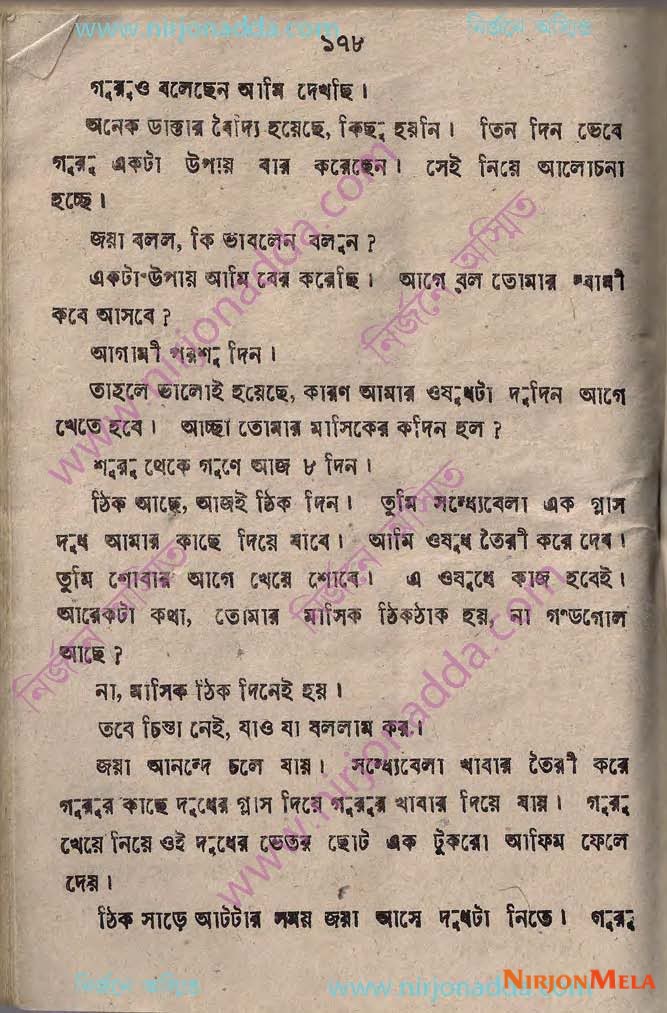 www.nirjonadda.com
নির্জনে অস্মিত
১৭৮
গুরুও বলেছেন আমি দেখছি।
অনেক ডাক্তার বৈদ্যি হয়েছে, কিছু হয়নি। তিন দিন ভেবে
গুরু একটা উপায় বার করেছেন। সেই নিয়ে আলোচনা
হচ্ছে।
জয়া বলল, কি ভাবলেন বলুন?
একটা উপায় আমি বের করেছি। আগে বল তোমার স্বামী
কবে আসবে?
আগামী পরশু দিন।
তাহলে ভালোই হয়েছে, কারণ আমার ওষুধটা দুদিন আগে
খেতে হবে। আচ্ছা তোমার মাসিকের কদিন হল?
শুরু থেকে গুণে আজ ৮ দিন।
ঠিক আছে, আজই ঠিক দিন। তুমি সন্ধ্যেবেলা এক গ্লাস
দুধ আমার কাছে দিয়ে যাবে। আমি ওষুধ তৈরী করে দেব।
তুমি শোবার আগে খেয়ে শোবে। এ ওষুধে কাজ হবেই।
আরেকটা কথা, তোমার মাসিক ঠিকঠাক হয়, না গণ্ডগোল
আছে?
না, মাসিক ঠিক দিনেই হয়।
তবে চিন্তা নেই, যাও যা বললাম কর।
জয়া আনন্দে চলে যায়। সন্ধ্যেবেলা খাবার তৈরী করে
গুরুর কাছে দুধের গ্লাস দিয়ে গুরুর খাবার দিয়ে যায়। গুরু
খেয়ে নিয়ে ওই দুধের ভেতর ছোট এক টুকরো আফিম ফেলে
দেয়।
ঠিক সাড়ে আটটার সময় জয়া আসে দুধটা নিতে। গুরু
www.nirjonadda.com
নির্জনে অস্মিত
নির্জনে অস্মিত
নির্জনে অস্মিত
www.nirjonadda.com
নির্জনে অস্মিত
www.nirjonadda.com
NIRJONMELA